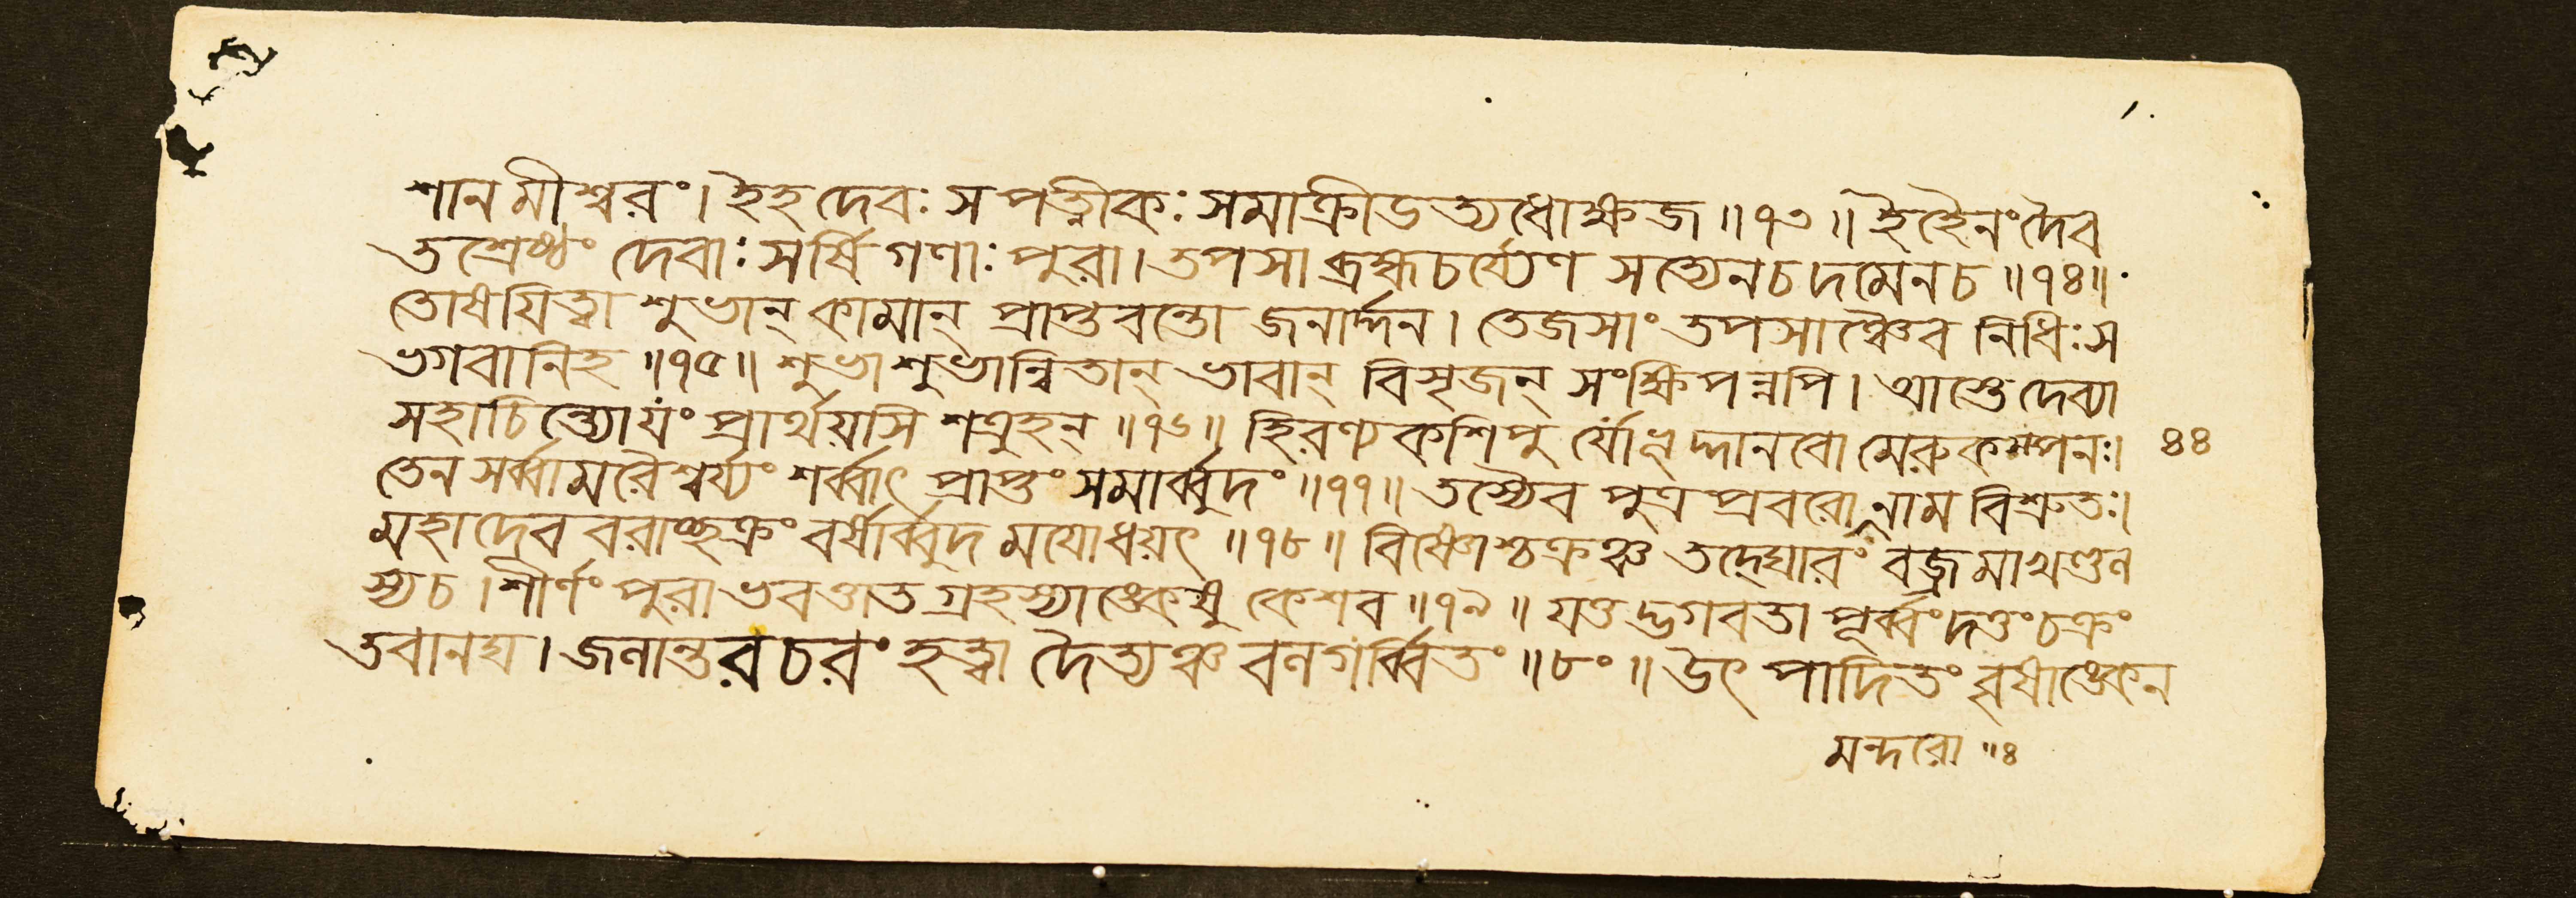 শানমীশ্বরং। ইহ দেবঃ সপত্নীকঃ সমাক্রীডত্যধোক্ষজ ॥৭৩॥ ইহৈনং দৈব
তশ্রেষ্ঠং দেবাঃ সর্ষিগণাঃ পুরা। তপসা ব্রহ্মচর্য্যেণ সত্যেন চ দমেন চ ॥৭৪॥
তোষয়িত্বা শুভান্ কামান্ প্রাপ্তবন্তো জনার্দ্দন। তেজসাং তপসাঞ্চৈব নিধিঃ স
ভগবানিহ ॥৭৫॥ শুভাশুভান্বিতান্ ভাবান্ বিসৃজন্ সংক্ষিপন্নপি। আস্তে দেব্যা
সহাচিন্ত্যোয়ং প্রার্থয়সি শত্রুহন্ ॥৭৬॥ হিরণ্যকশিপুর্যোভূদ্দানবো মেরুকম্পনঃ। ৪৪
তেন সর্ব্বামরৈশ্বর্য্যং শর্ব্বাৎ প্রাপ্তং সমার্ব্বুদং ॥৭৭॥ তস্যৈব পুত্রপ্রবরো নাম বিশ্রুতঃ।
মহাদেববরাচ্ছক্রং বর্ষার্ব্বুদমযোধয়ৎ ॥৭৮॥ বিষ্ণোশ্চক্রঞ্চ তদ্ঘোরং বজ্রমাখণ্ডল
স্য চ। শীর্ণং পুরাভবত্তাত গ্রহস্যাঙ্গেষু কেশব ॥৭৯॥ যত্তদ্ভগবতা পূর্ব্বং দত্তং চক্রং
তবানঘ। জলান্তরচরং হত্বা দৈত্যঞ্চ বলগর্ব্বিতং ॥৮০॥ উৎপাদিতং বৃষাঙ্কেন
মন্দরো ॥৪